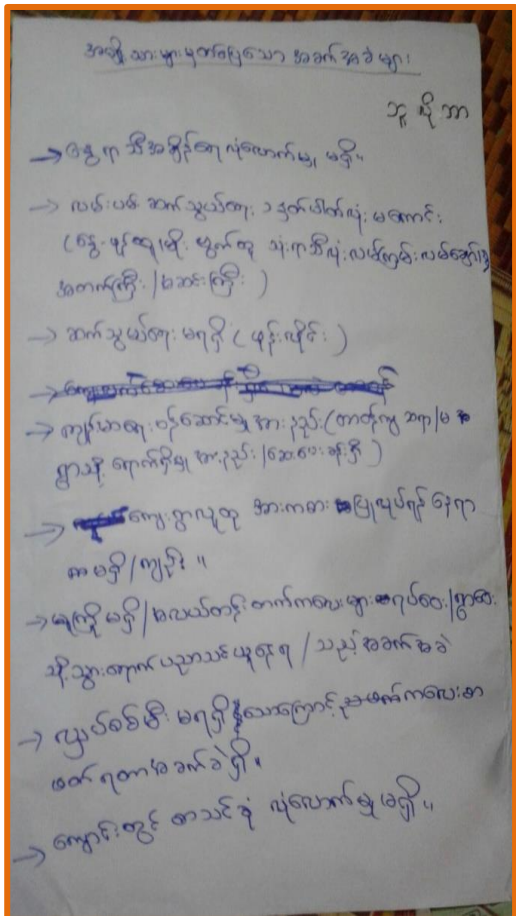 အမျိုးသားများမှတ်မြေသော အခက်အခဲများ
ဘူမိုဘာ
→ နွေရာသီအချိန်ရေလုံလောက်မှု မရှိ။
→ လမ်းပမ်းဆက်သွယ်ရေး ၁နှစ်ပါတ်လုံး မကောင်း
(နွေ-ဖုန်ထူ၊မိုး-ရွှက်ထူ သုံးရာသီလုံးလမ်းကြမ်း လမ်းချော်၊
အတက်ကြီး/အဆင်းကြီး)
→ ဆက်သွယ်ရေးမရရှိ (ဖုန်းလိုင်း)
→ ကျန်းမာရေးဝန်ဆောင်မှု အားနည်း (တာဝန်ကျ ဆရာ/မ
ရွာသို့ ရောက်ရှိမှု အားနည်း/ဆေးပေးခန်းရှိ)
→ ကျေးရွာလူထု အားကစားပြုလုပ်ရန် နေရာ
မရှိ/ကျဉ်း။
→ မူကြိုမရှိ/အလယ်တန်းတက်ကလေးများရပ်ဝေး/ရွာဝေး
သို့သွားရောက်ပညာသင်ယူနေရ/သည့်အခက်အခဲ
→ လျှပ်စစ်မီး မရရှိသောကြောင့် ညဖက်ကလေးစာ
ဖတ်ရတာအခက်ခဲရှိ။
→ ကျောင်းတွင် စာသင်ခုံ လုံလောက်မှုမရှိ။